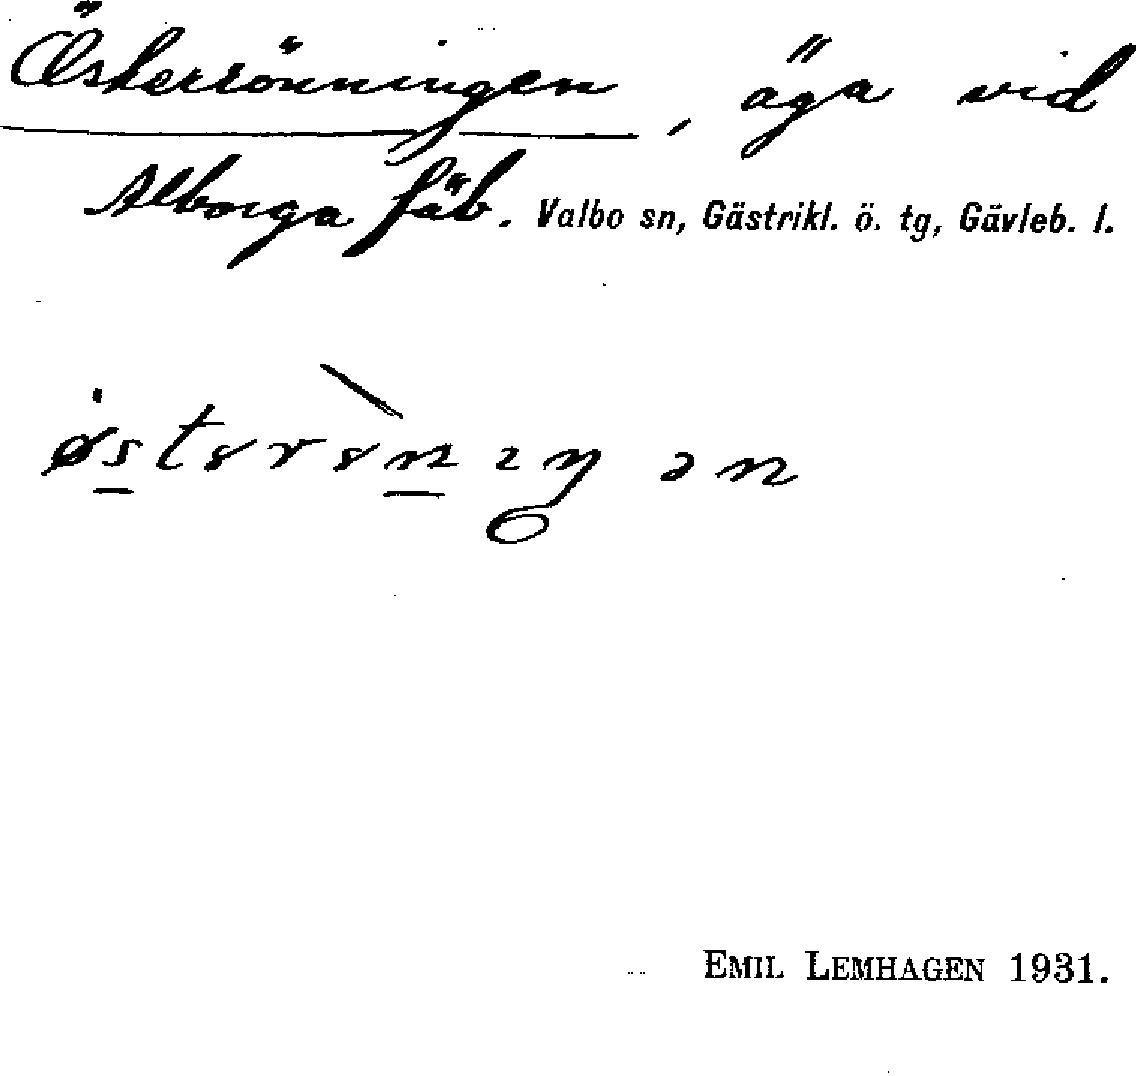 Österrönningen, äga vid
Alborga fäb. Valbo sn, Gästrikl. ö. tg, Gävleb. l.
EMIL LEMHAGEN 1931.